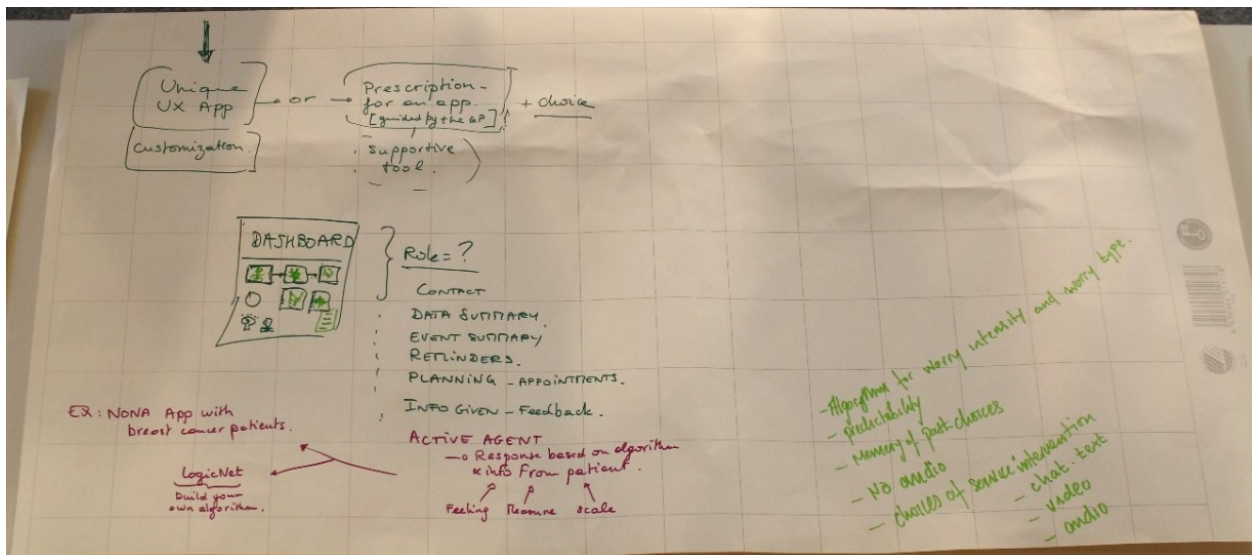 Unique
UX App
or
Prescription -
for an app.
[guided by the GP]!
+ choice
Customization.
supportive
tool.
DASHBOARD
Role = ?
CONTACT
DATA SUMMARY
EVENT SUMMARY
REMINDERS.
PLANNING - APPOINTMENTS.
INFO GIVEN - Feedback.
ACTIVE AGENT
Response based on algorithm
info From patient.
Feeling
scale
EX: NONA App with
breast cancer patients.
LogicNet
build your
own algorithm.
- Algorythm for worry intensity and worry type.
- predictability
- Memory of past choices
- No audio
- choices of service intervention
- chat. text
- video
- audio